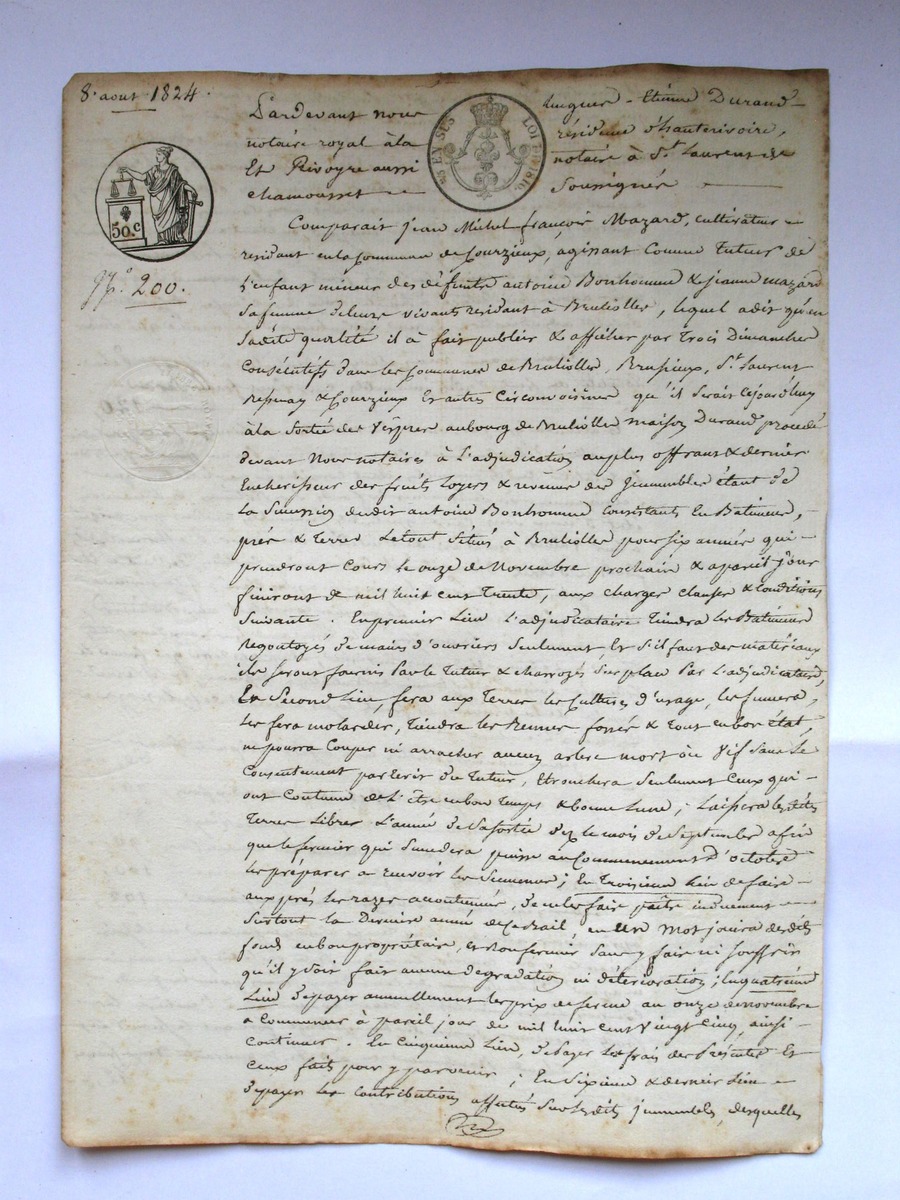 8. aout 1824.
Pardevant nous hugues - Etienne Durand
notaire royal à la résidence d'hauterivoire,
Et Rivoyre aussi notaire à St. Laurent de
chamousset Soussignés
EN SUS LOI DE 1816
50.c
200.
Comparait jean Michel françois Mazard, cultivateur
residant en la Commune de Courzieux, agissant Comme Tuteur de
L'enfant mineur des défunts antoine Bonhomme & jeanne mazard
sa femme de leurs vivants residant à Brullioles, lequel a dit qu'en
sadite qualité il à fait publier & afficher par Trois Dimanches
Consécutifs dans les Communes de Brullioles, Brussieux, St. Laurent
& Courzieux Et autres Circonvoisines qu'il serait cejourd'huy
à la Sortie des Vespres au bourg de Brullioles maison Durand procédé
devant Nous notaires à L'adjudication au plus offrant & dernier
Encherisseur des fruits Loyers & revenus des jmmeubles étant de
La Succession dudit antoine Bonhomme Consistants En Batiments,
prés & Terres Le tout situés à Brullioles pour six années qui
prendront Cours le onze de Novembre prochain & a pareil jour
finiront de mil huit cent Trente, aux charges clauses & Conditions
Suivante. En premier Lieu L'adjudicataire Tiendra les Batiments
Regoutoyés de mains d'ouvriers Seulement Et S'il faut des matériaux
ils seront fournis Par le Tuteur & charroyés Sur place Par L'adjudicataire,
En Second Lieu, fera aux Terres les Cultures d'usage, les fumera,
Les fera , Tiendra les fossés & Tout en bon état,
ne pourra Couper ni arracher aucun arbre mort ou Vif Sans Le
Consentement par Ecrit du Tuteur, Seulement Ceux qui
ont Coutume de L'être en bon Temps & bonne Lune; Laissera lesdites
Terres Libres L'année de Sa Sortie dez le mois de Septembre afin
que le fermier qui Succedera puisse au Commencement d'octobre
Les préparer à recevoir les Semences; En Troisieme Lieu de faire
aux prés les razes accoutumées, de ne les faire paître induement
Surtout la Derniere année de Ce bail, en un Mot jouira desdits
fonds en bon propriétaire, et bon fermier Sans y faire ni Souffrir
qu'il y Soit fait aucune dégradation ni déterioration; En quatrieme
Lieu de payer annuellement les prix de ferme au onze de novembre
a Commencer à pareil jour de mil huit cent Vingt Cinq, ainsi
Continuer. En Cinquieme Lieu, de Payer Les frais des Présentes Et
Ceux faits pour y parvenir; En Sixieme & dernier Lieu
de payer Les Contributions affectées Sur lesdits jmmeubles, desquelles